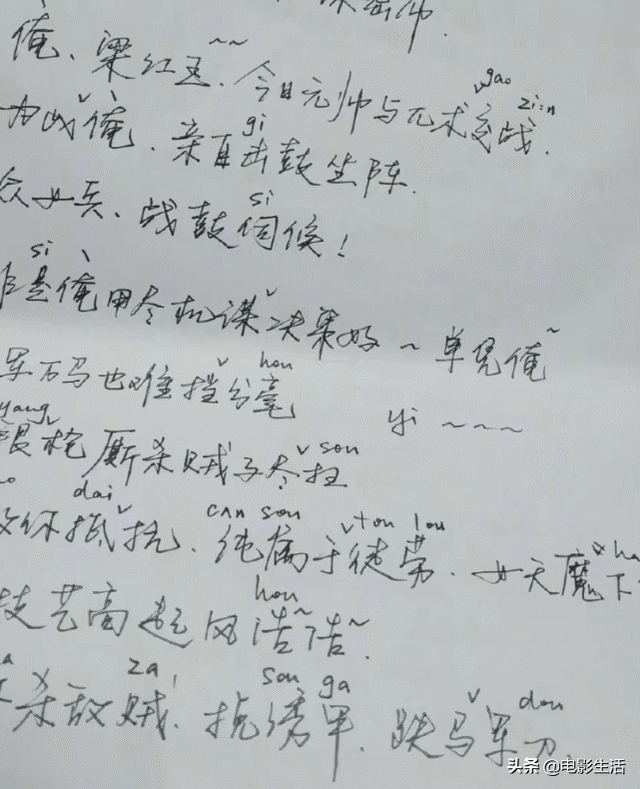 帅.
gao zi:n
俺、梁红玉~~、今日元帅与兀术交战.
gi
俺、亲自击鼓坐阵.
si
众女兵、战鼓伺候!
si
是俺用尽机谋决策好~单凭俺~
hou
军万马也难挡分毫
yang yi~~~
sou
枪厮杀贼子尽扫
dai can sou tou lou ha
你抵抗.纯属于徒劳.女天魔下
hou
技艺高起风浩~浩~.
za sou ga dou
杀敌贼.挽绣甲.跌马军刀.
头条 @电影生活